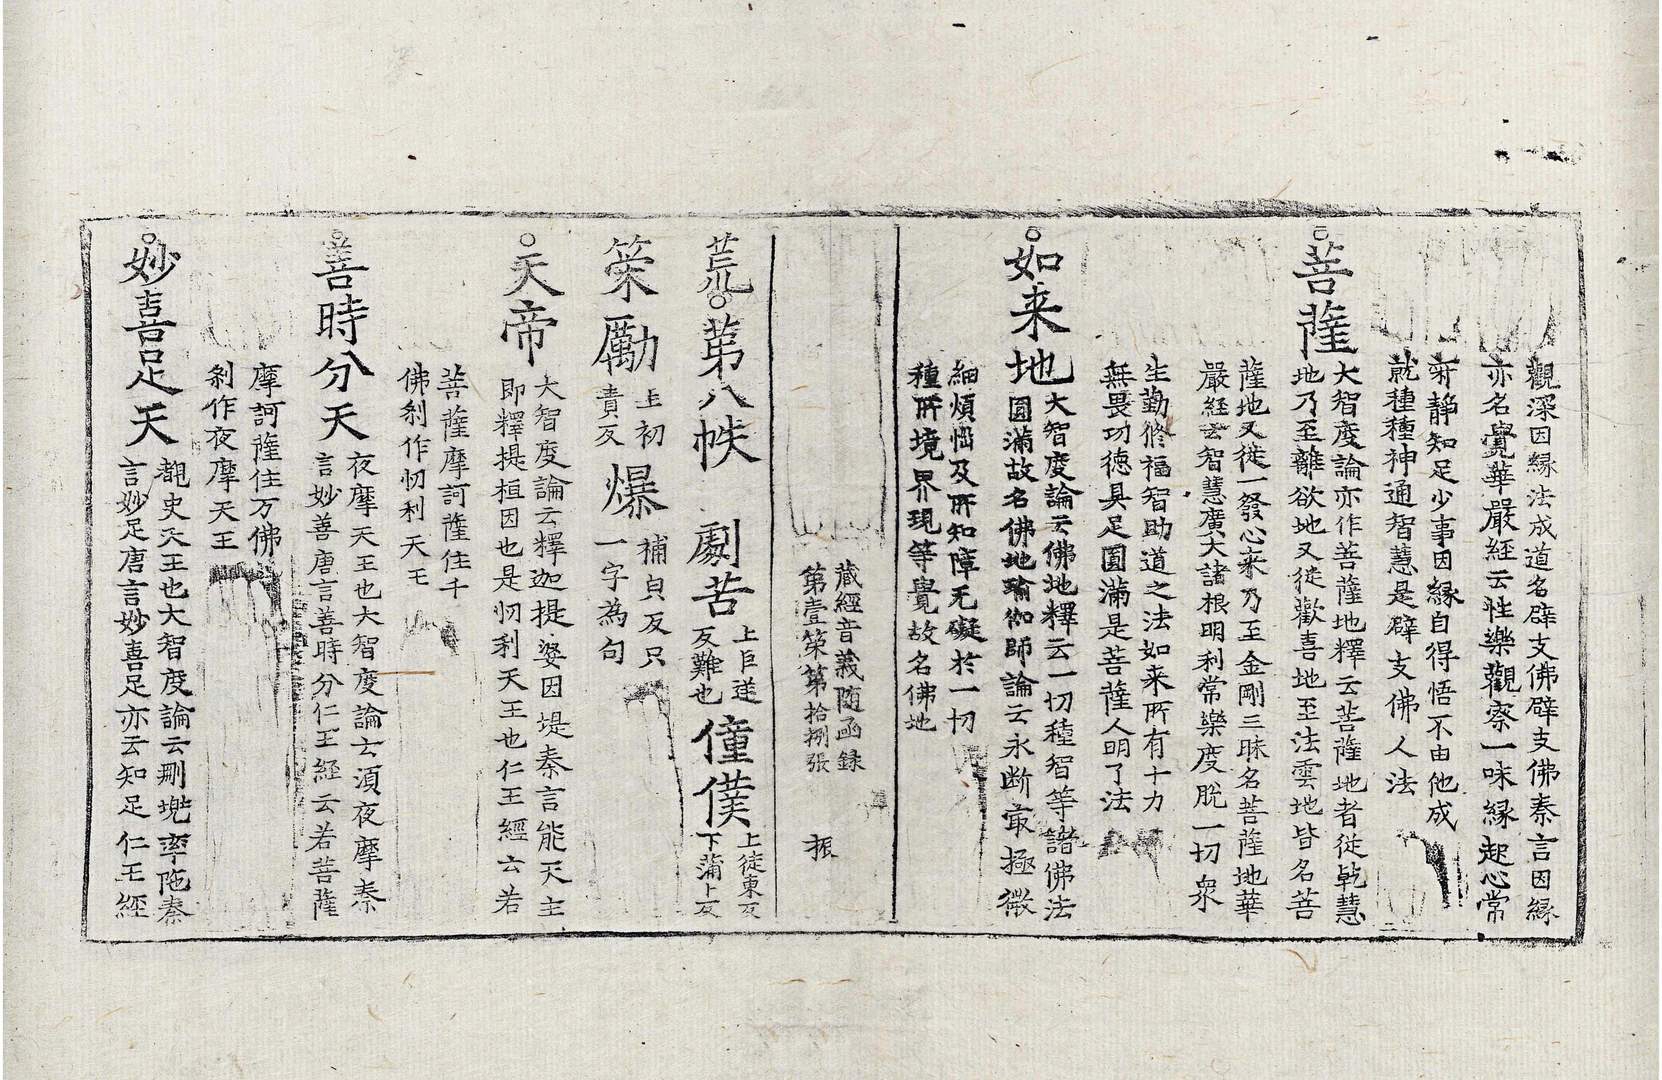 觀深因縁法成道名辟支佛辟支佛秦言因縁
亦名覺華嚴経云性樂觀察一味縁起心常
寂静知足少事因縁自得悟不由他成
就種種神通智慧是辟支佛人法
菩薩地
大智度論亦作菩薩地釋云菩薩地者從乹慧
地乃至離欲地又従歡喜地至法雲地皆名菩
薩地又従一發心来乃至金剛三昧名菩薩地華
嚴経云智慧廣大諸根明利常樂度脱一切衆
生勤修福智助道之法如来所有十力
無畏功德具足圓滿是菩薩人明了法
如来地
大智度論云佛地釋云一切種智等諸佛法
圓滿故名佛地瑜伽師論云永断㝡極微
細煩惱及所知障无礙於一切
種所境界現等覺故名佛地
蔵經音義随函録
第壹筞第拾捌張 振
荒 第八帙
劇苦
上巨逆
反難也
僮僕
上徒東反
下蒲卜反
筞勵
上初
責反
爆
補皃反只
一字為句
天帝
大智度論云釋迦提婆因堤秦言能天主
即釋提桓因也是忉利天王也仁王經云若
菩薩摩訶薩住千
佛刹作忉利天王
善時分天
夜摩天王也大智度論云湏夜摩秦
言妙善唐言善時分仁王経云若菩薩
摩訶薩住万佛
刹作夜摩天王
妙喜足天
覩史天王也大智度論云刪兠率陁秦
言妙足唐言妙喜足亦云知足仁王經